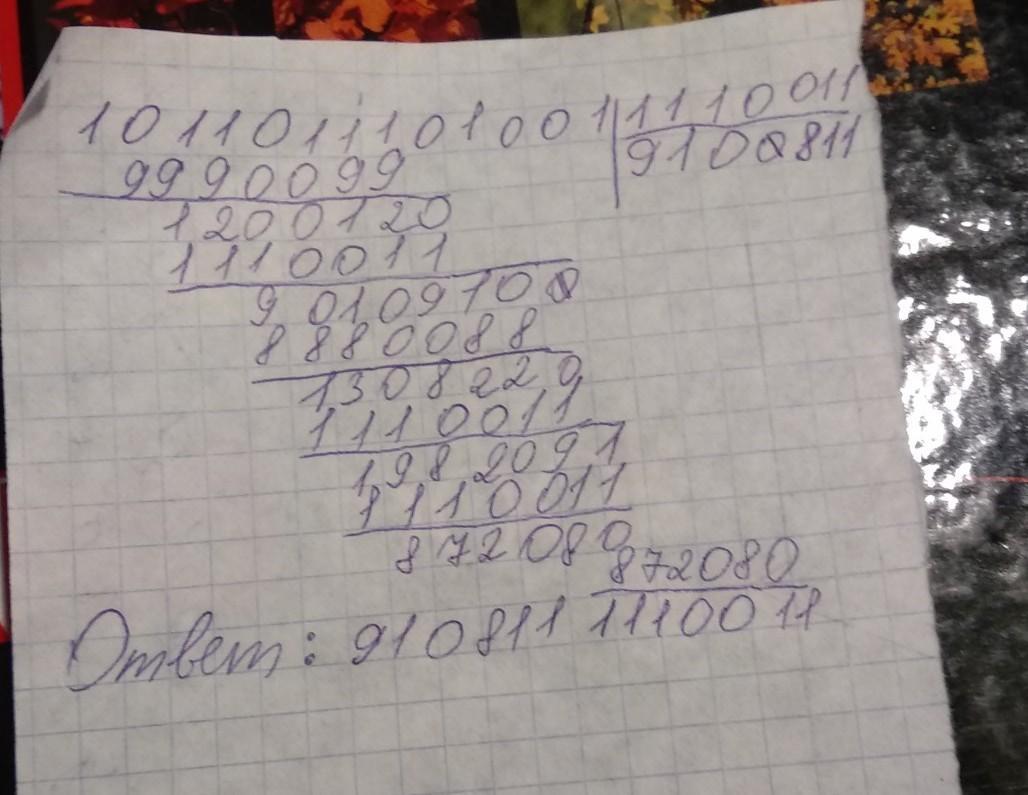 10110111101001 1110011
9990099 9100811
1200120
1110011
90109100
8880088
1308220
1110011
1982091
1110011
872080
Ответ: 910811 872080
1110011